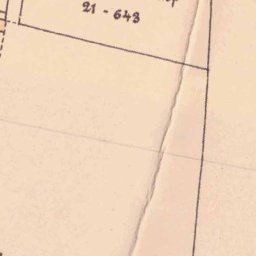 21 - 643